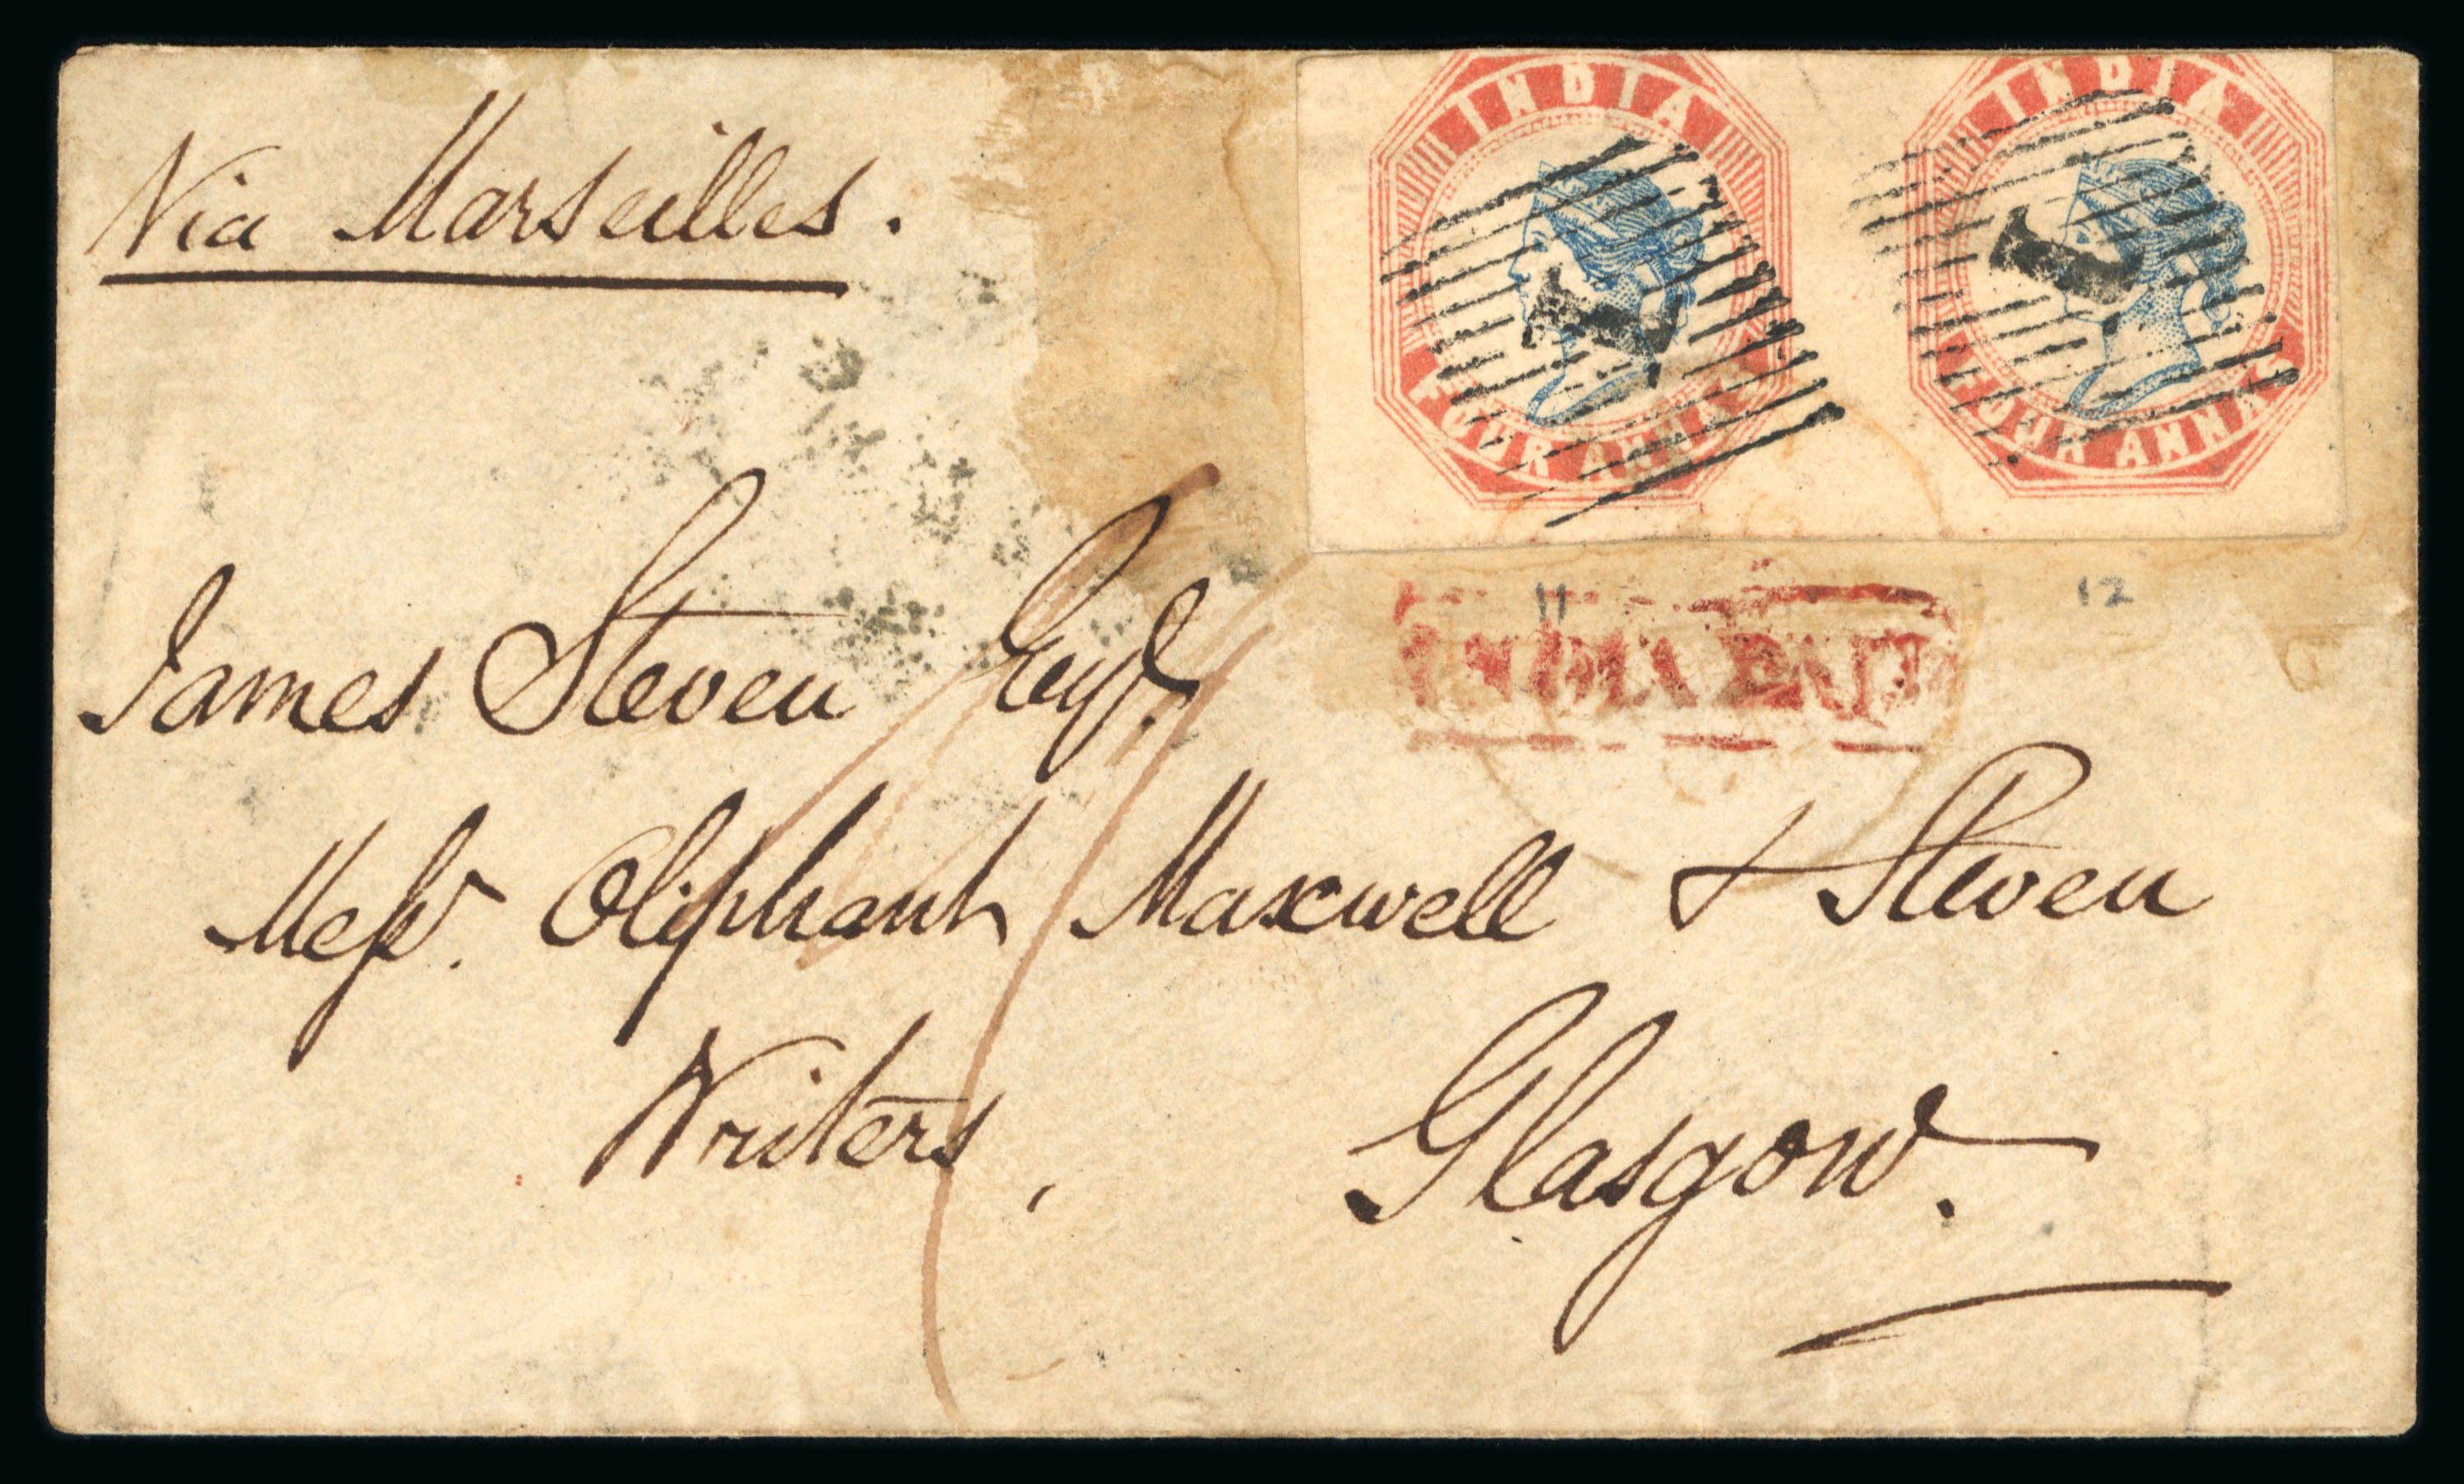 Via Marseilles.
INDIA
FOUR ANNAS
INDIA
FOUR ANNAS
1
1
11
12
INDIA PAID
James Steven Esqr.
Messrs. Oliphant Maxwell & Steven
Writers,
Glasgow.